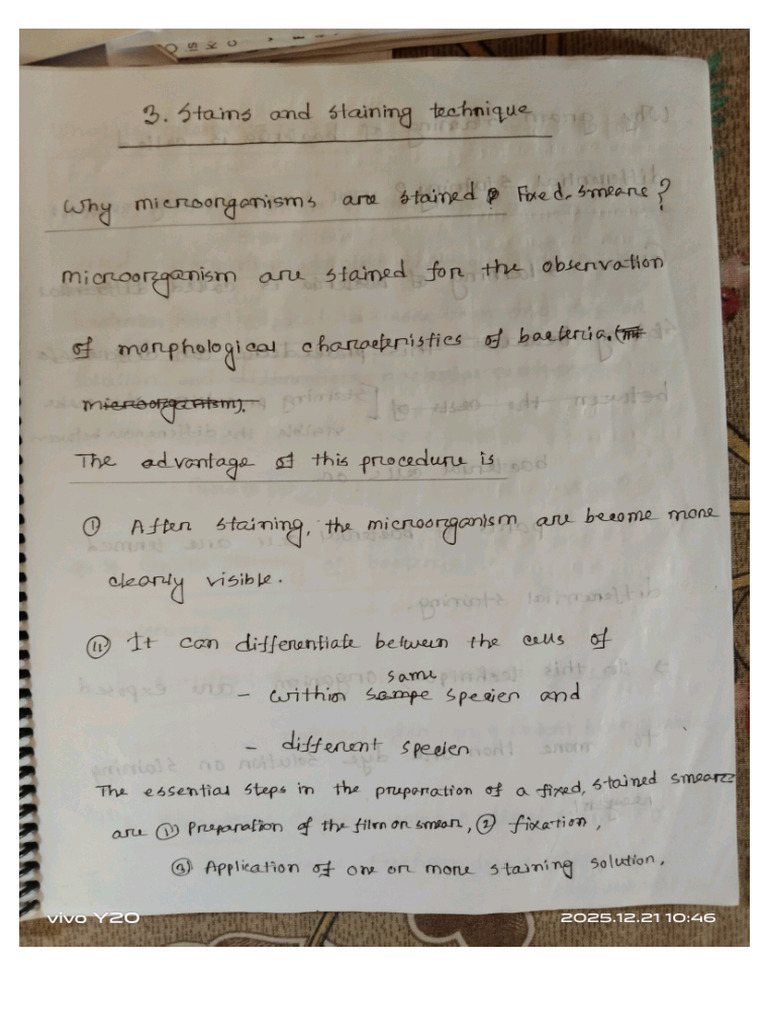 3. Stains and staining technique
Why microorganisms are stained Fixed, smears?
microorganism are stained for the observation
of morphological characteristics of bacteria.
microorganism).
The advantage of this procedure is
(i) After staining, the microorganism are become more
clearly visible.
(ii) It can differentiate between the cells of
same
- within sampe species and
- different species
The essential steps in the preparation of a fixed, stained smears
are (1) Preparation of the film or smear, (2) fixation,
(3) Application of one or more staining solution.
vivo Y20
2025.12.21 10:46